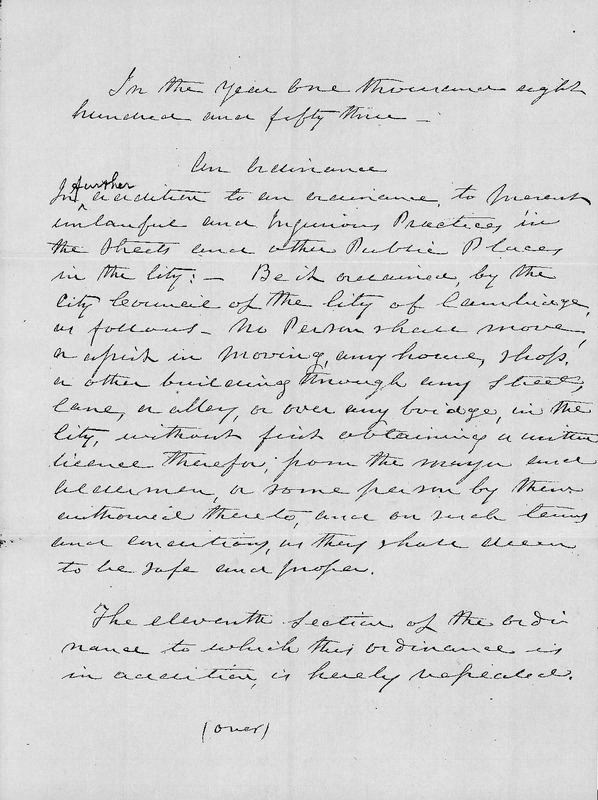 In the Year One thousand eight
hundred and fifty three –
An Ordinance
In further addition to an ordinance, to prevent
unlawful and Injurious Practices in
the Streets and other Public Places
in the City: – Be it ordained, by the
City Council of the City of Cambridge,
as follows – No Person shall move,
or assist in moving, any house, shop,
or other building through any Street,
lane, or alley, or over any bridge, in the
City, without first obtaining a written
licence therefor, from the mayor and
Aldermen, or some person by them
authorized thereto, and on such terms
and conditions, as they shall deem
to be safe and proper.
The eleventh section of the ordi
nance to which this ordinance is
in addition, is hereby repealed.
(over)